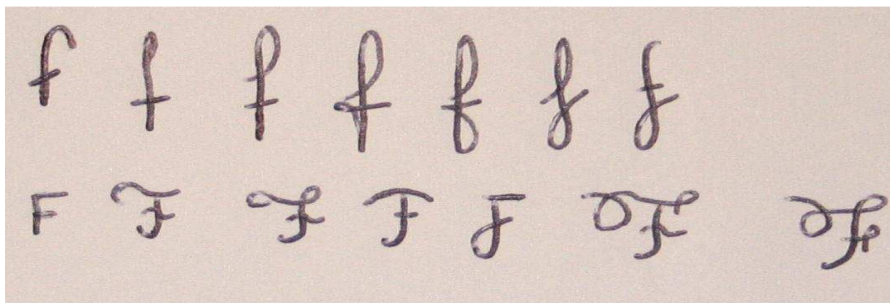 f f f f f f f
F F F F F F F